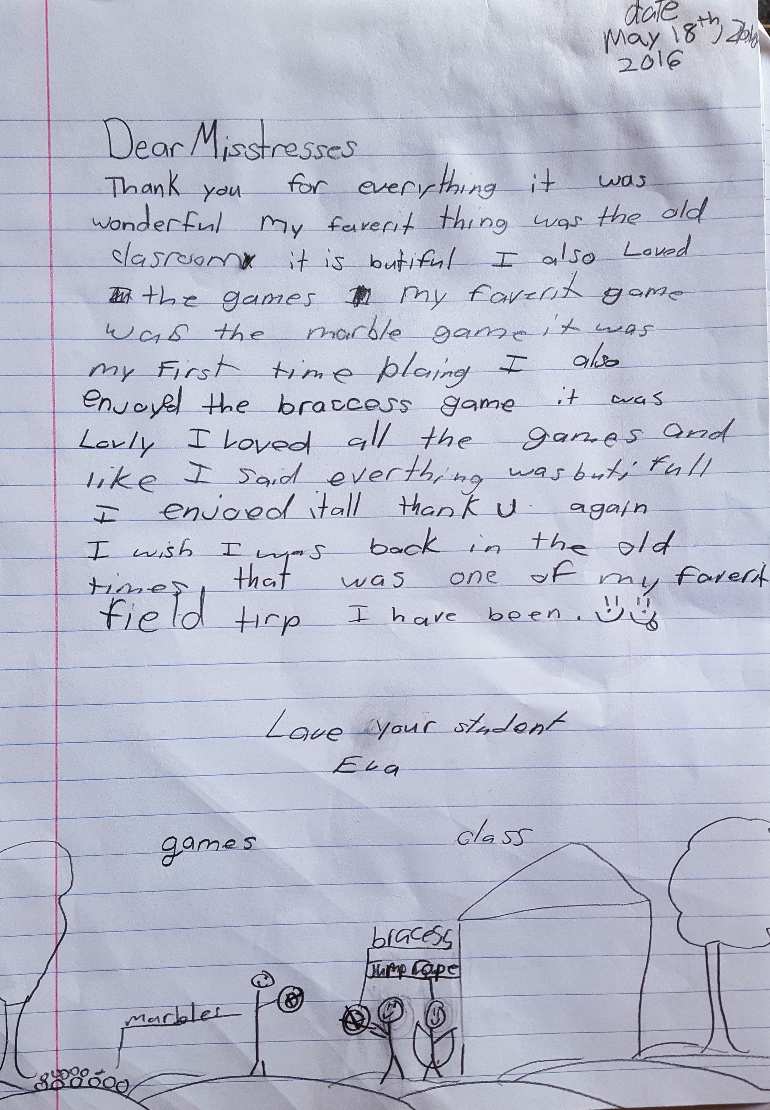 date
May 18th,
2016
Dear Misstresses
Thank you for everything it was
wonderful my faverit thing was the old
clasroom it is butiful I also Loved
the games my faverit game
was the marble game it was
my First time plaing I also
enjoyd the braccess game it was
Lovly I Loved all the games and
like I said everthing was butifull
I enjoed it all thank u again
I wish I was back in the old
times, that was one of my faverit
field tirp I have been.
Love your student
Eva
games
class
bracess
Jump Rope
marbles